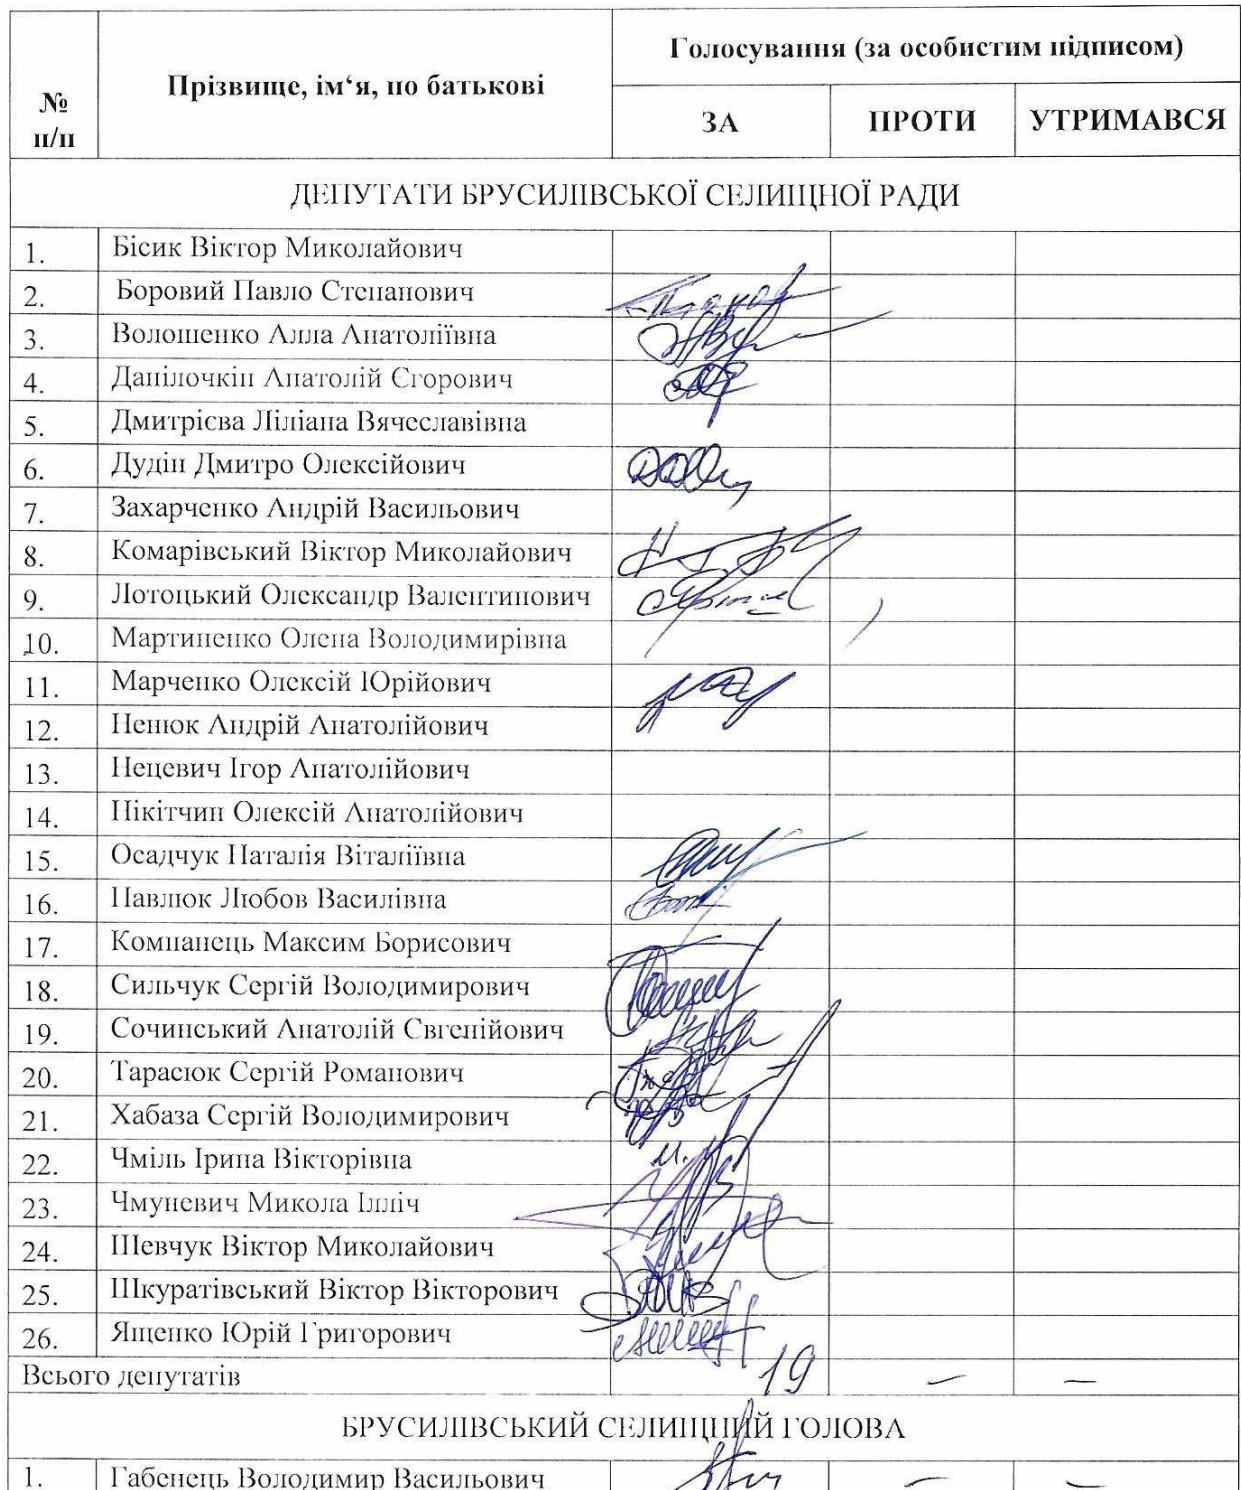 №
п/п
Прізвище, ім‘я, по батькові
Голосування (за особистим підписом)
ЗА
ПРОТИ
УТРИМАВСЯ
ДЕПУТАТИ БРУСИЛІВСЬКОЇ СЕЛИЩНОЇ РАДИ
1. Бісик Віктор Миколайович
2. Боровий Павло Степанович
3. Волошенко Алла Анатоліївна
4. Данілочкін Анатолій Єгорович
5. Дмитрієва Ліліана Вячеславівна
6. Дудін Дмитро Олексійович
7. Захарченко Андрій Васильович
8. Комарівський Віктор Миколайович
9. Лотоцький Олександр Валентинович
10. Мартиненко Олена Володимирівна
11. Марченко Олексій Юрійович
12. Ненюк Андрій Анатолійович
13. Нецевич Ігор Анатолійович
14. Нікітчин Олексій Анатолійович
15. Осадчук Наталія Віталіївна
16. Павлюк Любов Василівна
17. Компанець Максим Борисович
18. Сильчук Сергій Володимирович
19. Сочинський Анатолій Євгенійович
20. Тарасюк Сергій Романович
21. Хабаза Сергій Володимирович
22. Чміль Ірина Вікторівна
23. Чмуневич Микола Ілліч
24. Шевчук Віктор Миколайович
25. Шкуратівський Віктор Вікторович
26. Ященко Юрій Григорович
Всього депутатів 19 – –
БРУСИЛІВСЬКИЙ СЕЛИЩНИЙ ГОЛОВА
1. Габенець Володимир Васильович – –